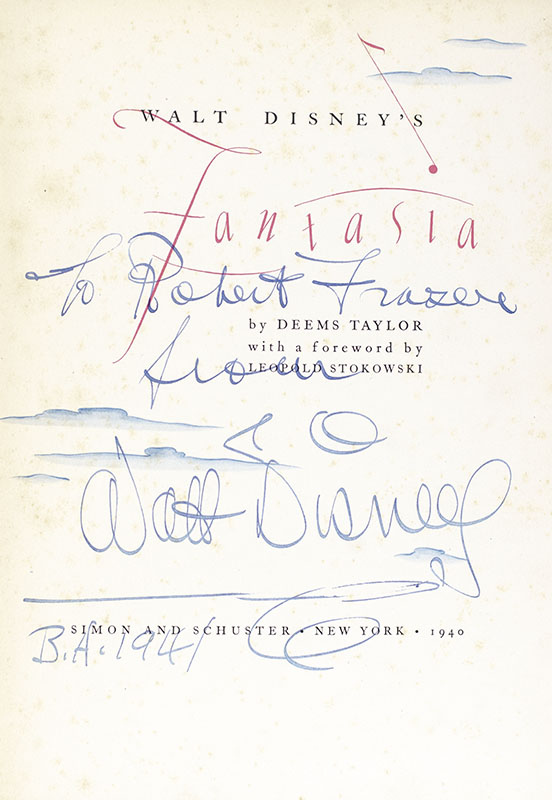 WALT DISNEY'S
Fantasia
To Robert Frazer
by DEEMS TAYLOR
with a foreword by
from
LEOPOLD STOKOWSKI
Walt Disney
SIMON AND SCHUSTER • NEW YORK • 1940
B.A. 1941